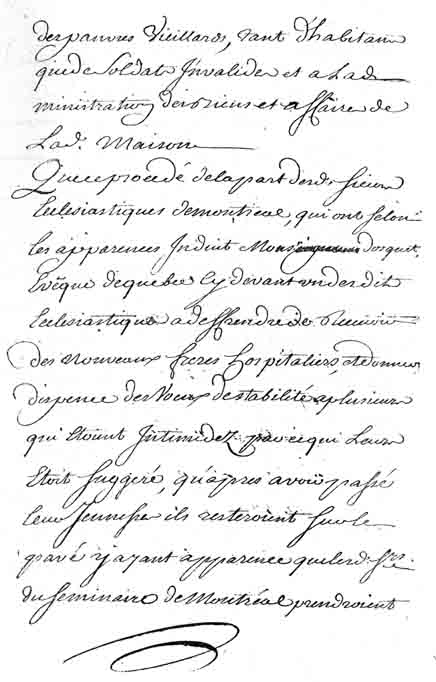 des pauvres Vieillards, tant d'habitans
que de Soldats Invalides et a Lad
ministration des biens et affaires de
Lad. Maison
Que ce procedé de la part desd. sieurs
Ecclesiastiques de montreal, qui ont selon
les apparences Induit Mons dosquet,
Evêque de quebec Cy devant un desdits
Ecclesiastiques a deffendre de Recevoir
des Nouveaux freres hospitaliers, et donner
dispence des Voeux de stabilité a plusieurs
qui Etoient Intimidez par ce qui Leur
Etoit Suggeré, qu'apres avoir passé
leur Jeunesse ils resteroient sur le
pavé y ayant apparence que lesd. Srs.
du Seminaire de Montréal prendroient